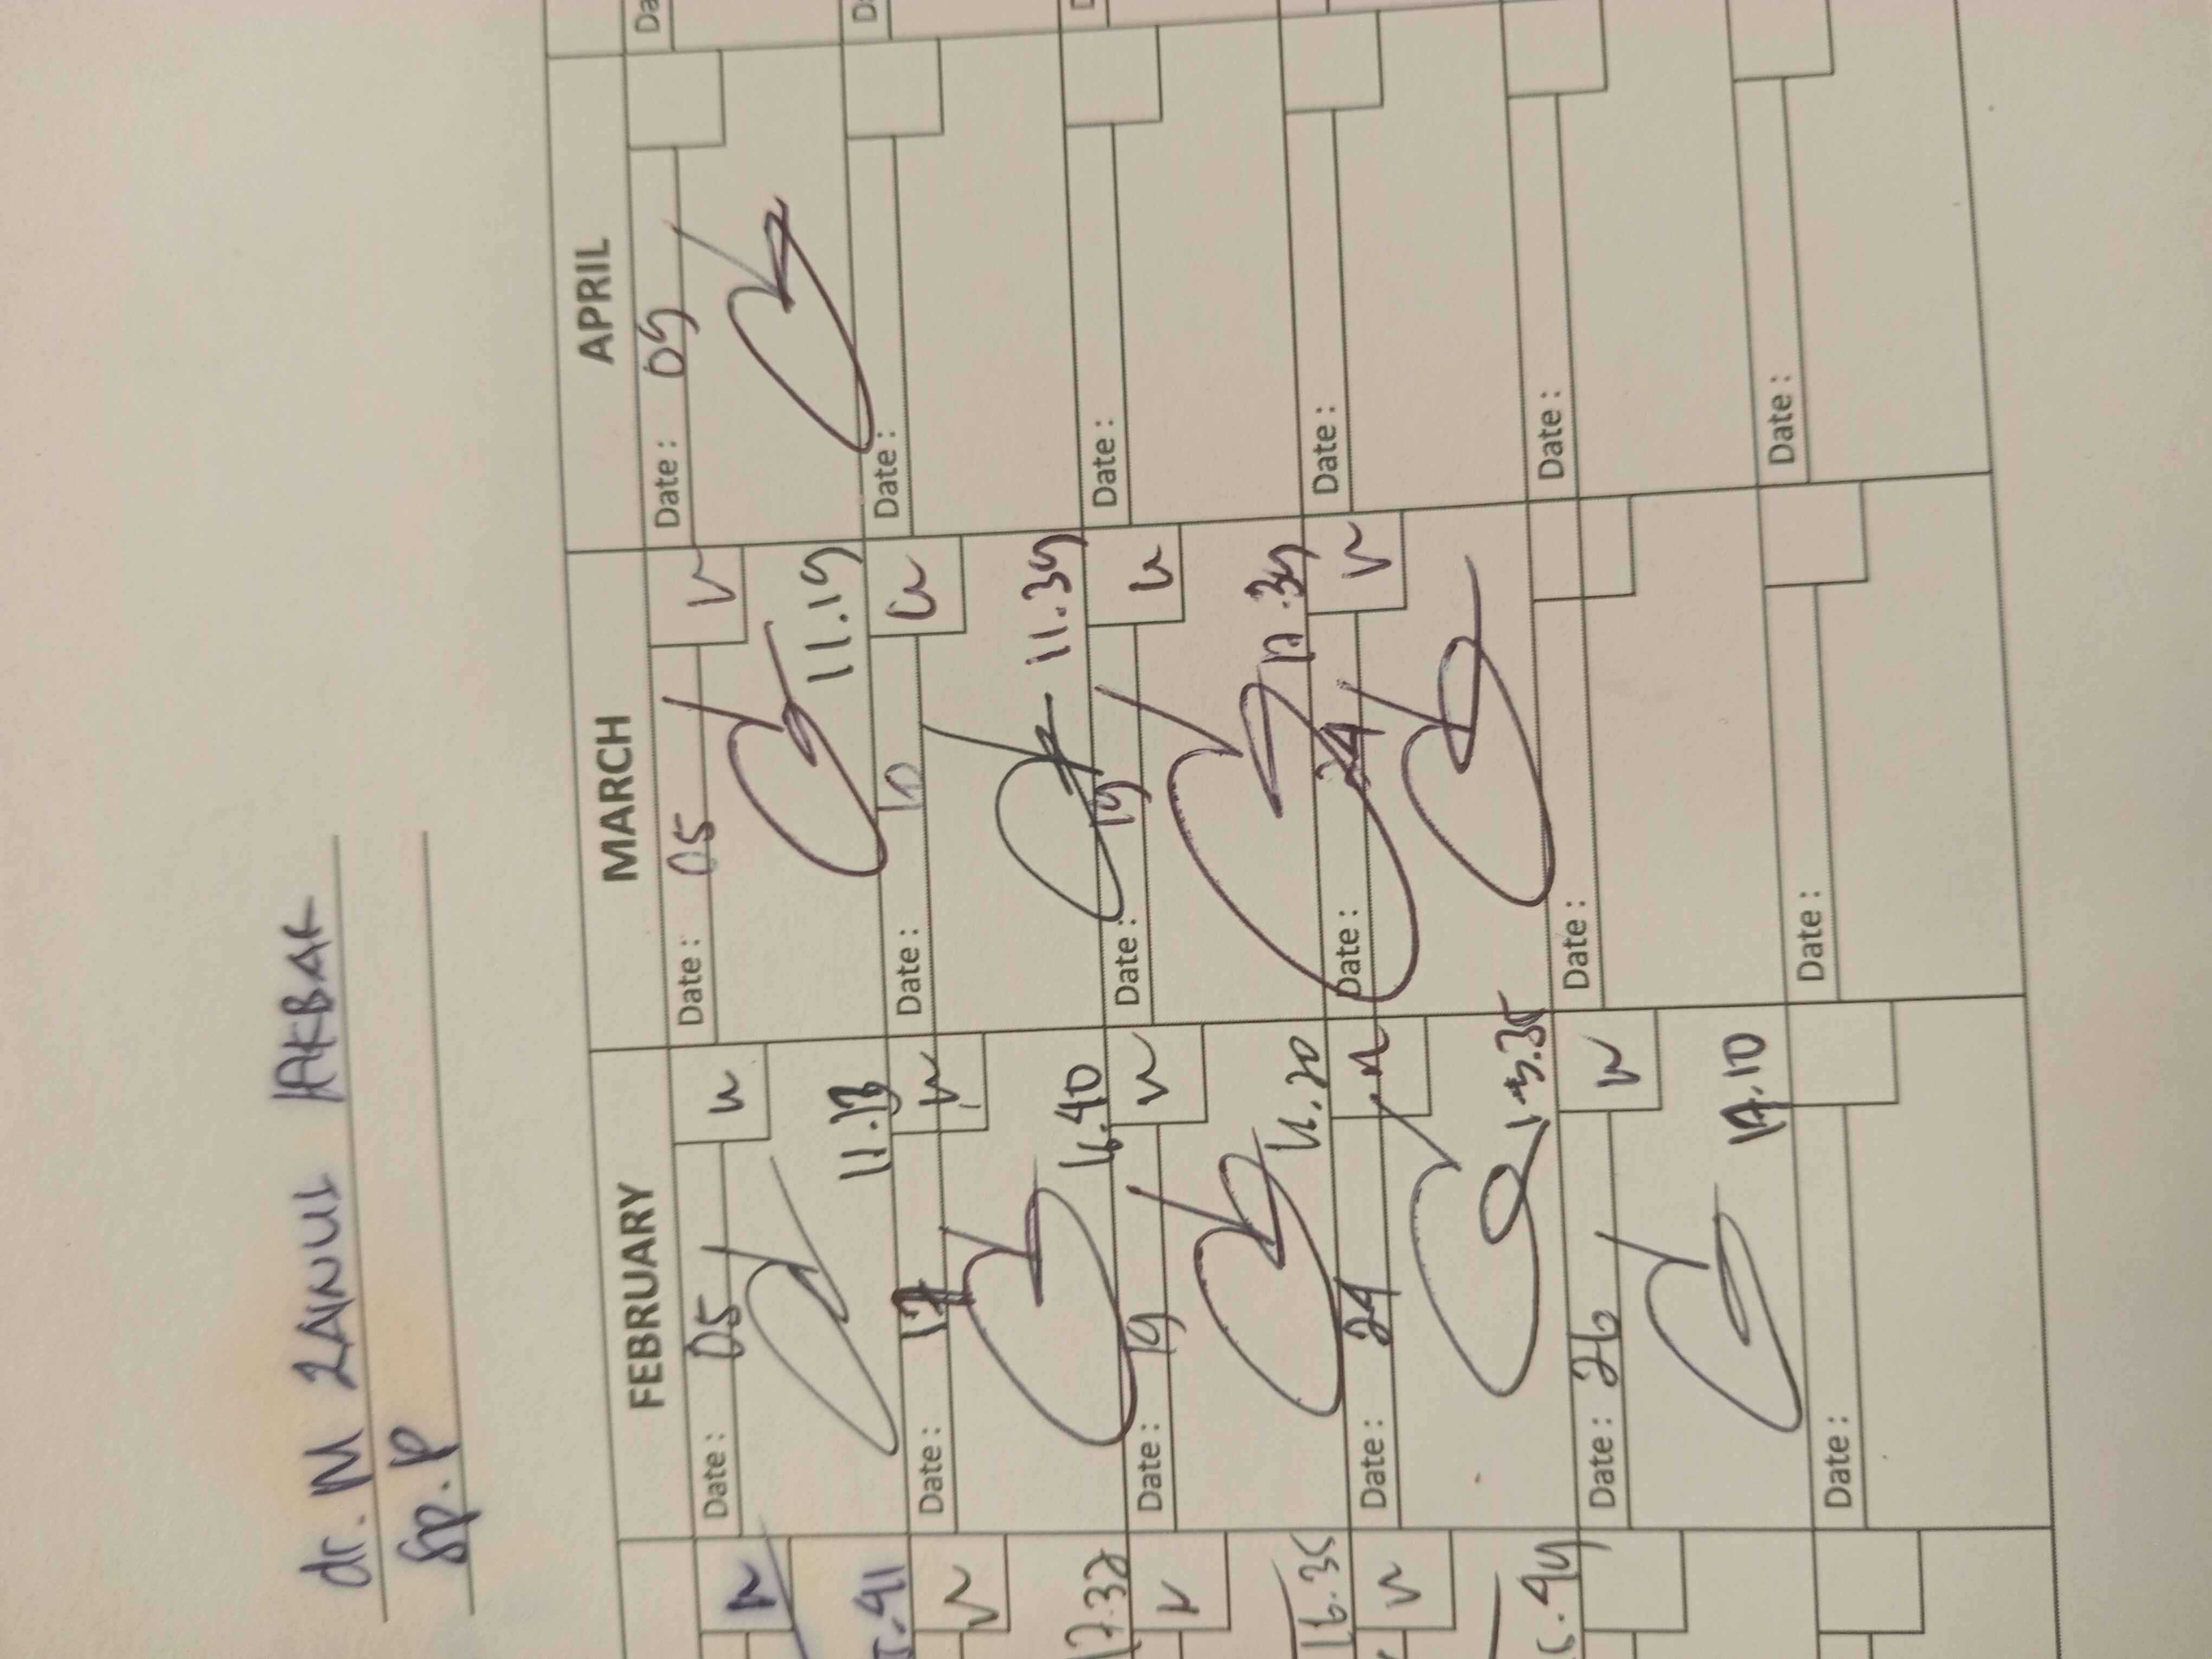 dr. M ZAINUL AKBAR
Sp. P
FEBRUARY MARCH APRIL
Date: 05 Date: 05 Date: 09
11.13 11.19
Date: 17 Date: 10 Date:
17.32 16.40 11.39
Date: 19 Date: 19 Date:
16.35 11.20
Date: 24 Date: 24 Date:
13.35
Date: 26 Date: Date:
17.10
Date: Date: Date: